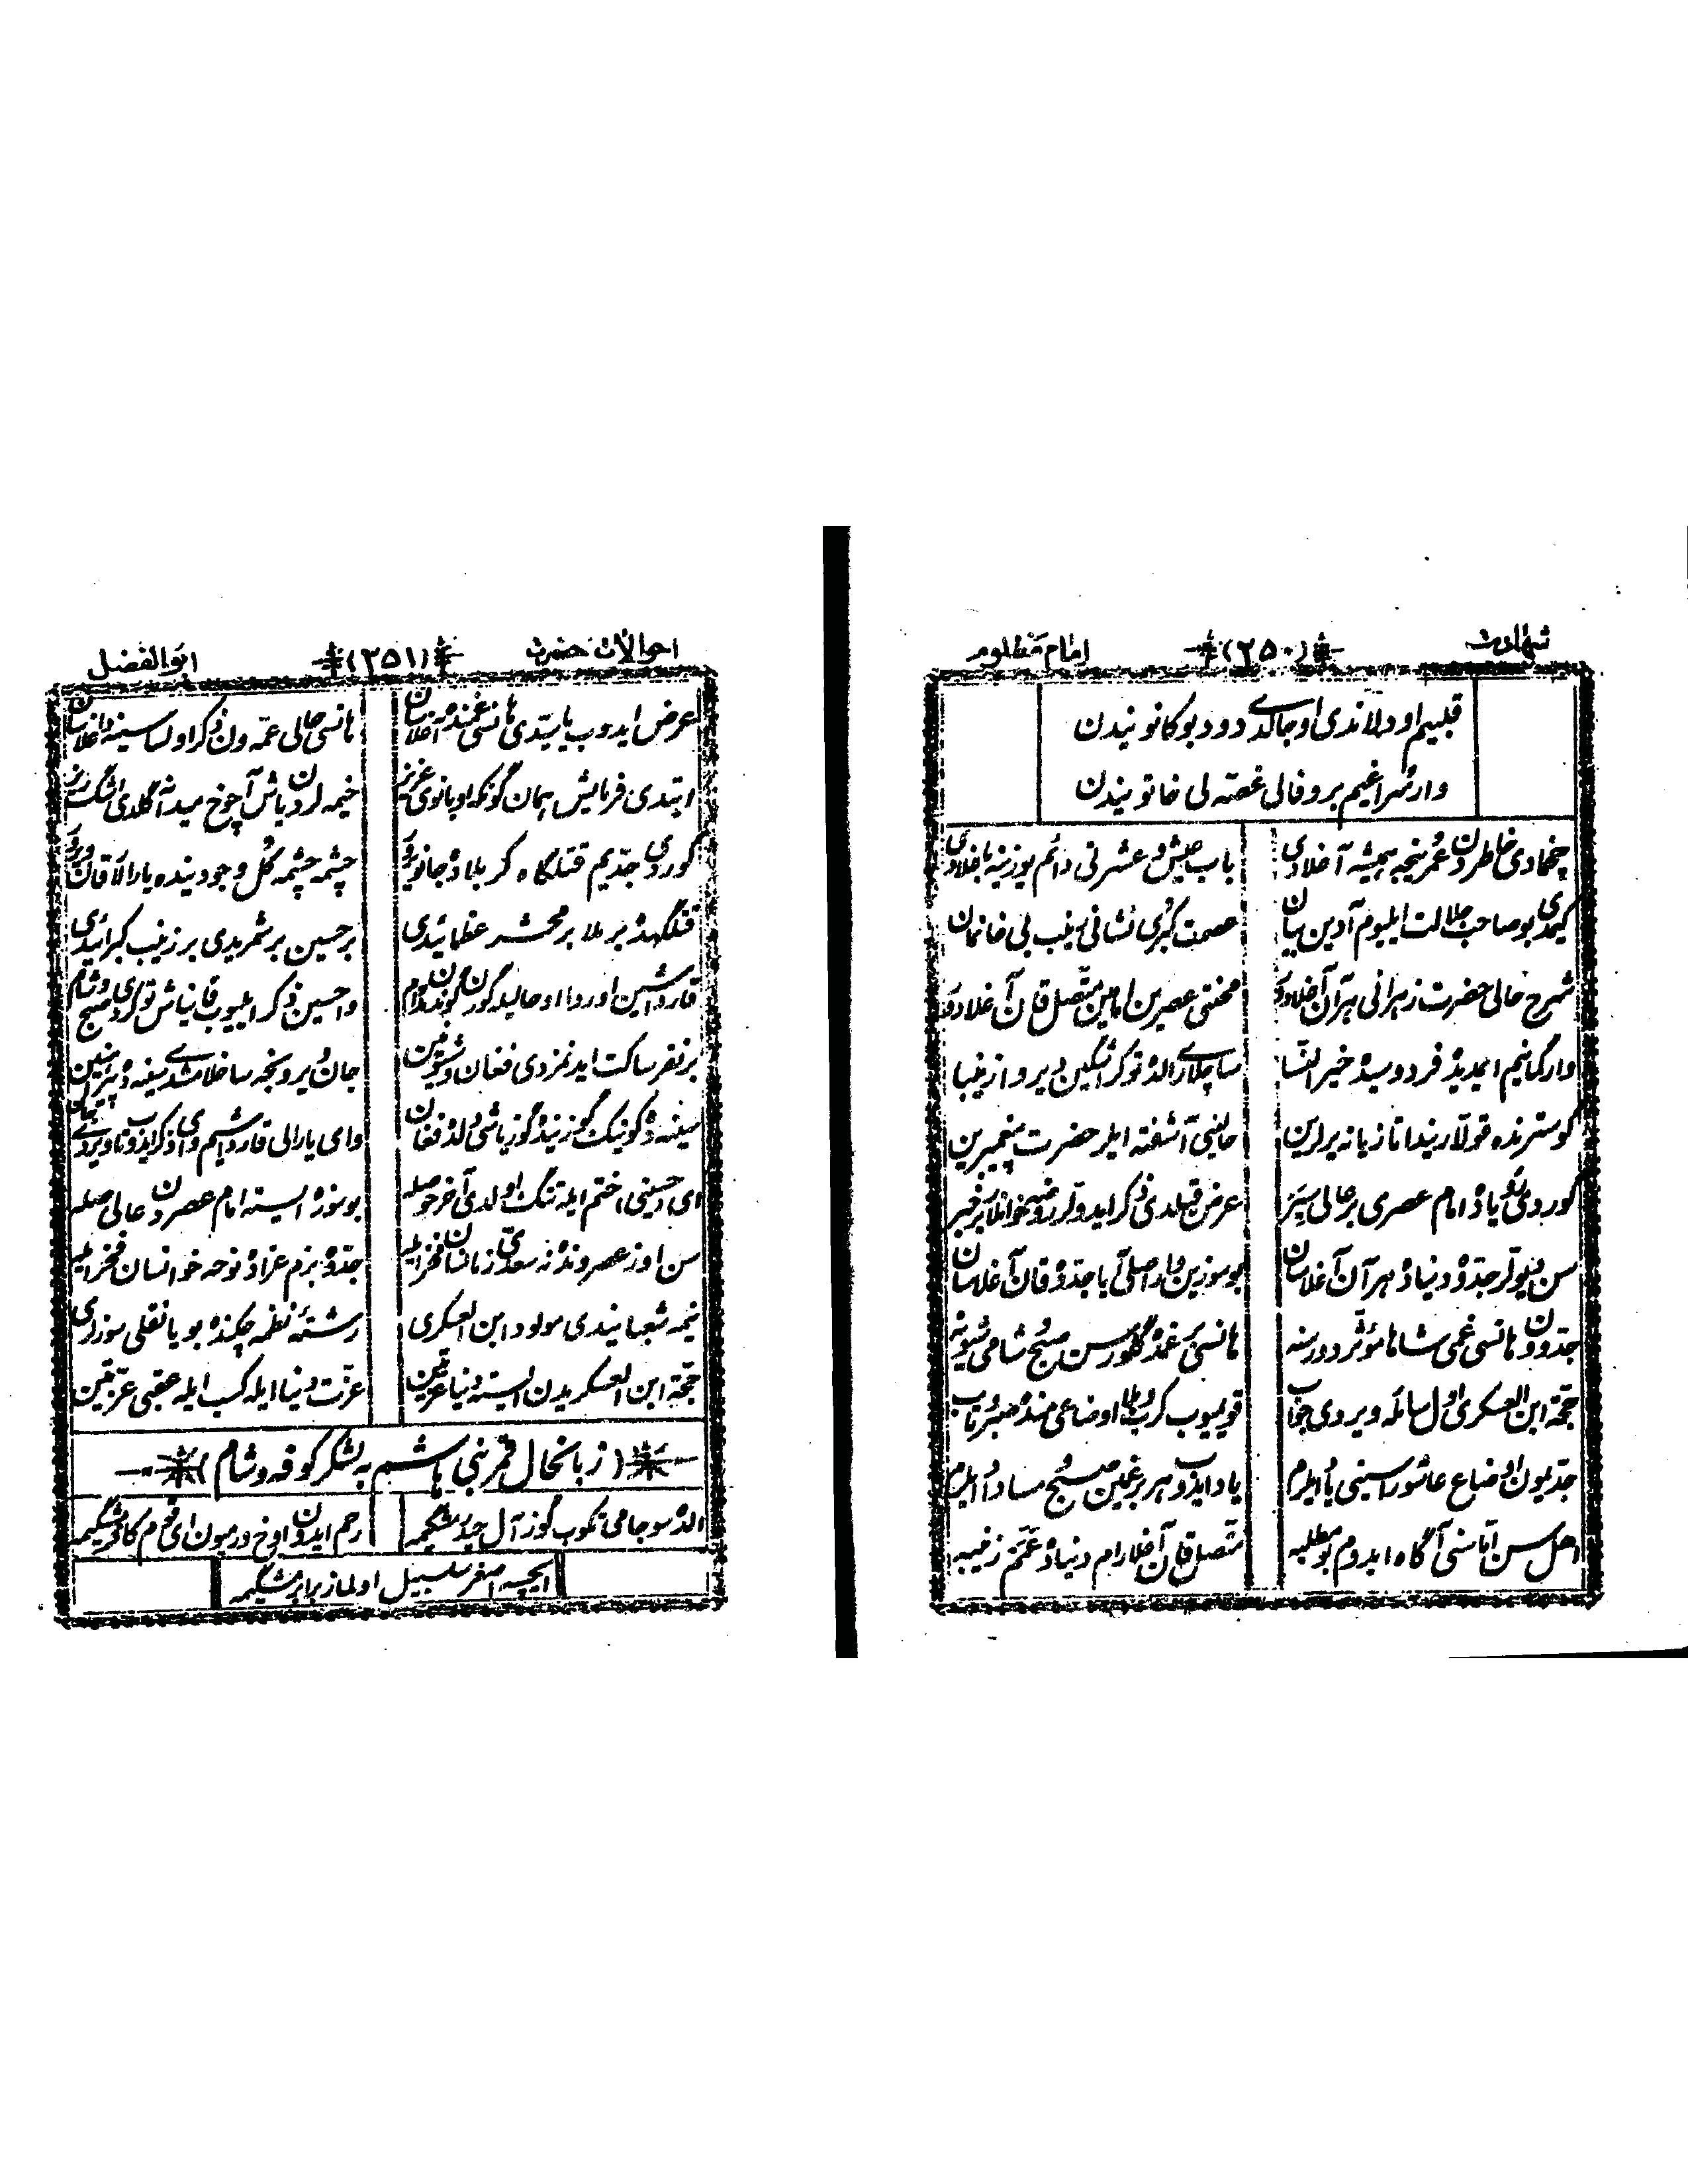 شهادت (۲۵۰) امام مظلوم
قلبیم اودلاندی اوجالدی دود بو کانونیدن
وار سراغیم بر وفالی غصه لی خاتونیدن
چخمادی خاطردن عمرینجه همیشه آغلادی باب عیش و عشرتی دائم یوزینه باغلادی
کیمدی بو صاحب جلالت ایلیوم آدین بیان عصمت کبری نشانی زینب بی خانمان
شرح حالی حضرت زهرانی هرآن آغلادور محنتی عصرین امامین متصل قان آغلادور
وارگمانیم ایدیدۀ فردوسیدۀ خیر النسا ساچلاری الدۀ توکر اشگین ویر وار زینبا
گوسترنده قولاریندا تازیانه یرلرین حالینی آشفته ایلر حضرت پیغمبرین
گوردی رؤیادۀ امام عصری بر عالی سیر عرض قیلدی ذکر ایدوللر روضه خوانلار بر خبر
سن دیوللر جدّوۀ دنیادۀ هر آن آغلاسان بو سوزین وار اصلی آیا جدّوۀ قان آغلاسان
جدّوون هانسی غمی شاها مؤثردور سنه هانسی بر غمدۀ گلورسن صبح و شامی شیونه
حجّة ابن العسکری اول سائله ویردی جواب قویمیوب کرب و بلا اوضاعی منده صبر و تاب
جدّیمون اوضاع عاشوراسینی یاد ایلرم یاد ایدوب هر بر غمین صبح و مسا داد ایلرم
احل سن آناسنی آگاه ایدوم بو مطلبه متصل قان آغلارام دنیادۀ عمّم زینبه
احوالات حضرت (۲۵۱) ابوالفضل
عرض ایدوب یا سیّدی هانسی غمنده آغلاسان هانسی حالی عمّه ون ذکر اولسا سینه داغلاسان
ایتدی فرمایش همان گونکه او بانوی عزیز خیمه لردن باش آچوخ میدانه گلدی اشگ ریز
گوردی جدّیم قتلگاه کربلادۀ جان ویرور چشمه چشمه گل وجودینده یارالار قان ویرور
قتلگهدۀ بر ملا بر محشر عظمائیدی بر حسین بر شمریدی بر زینب کبرائیدی
قارداشین اوردا او حالیله گورن گوندن مدام وا حسین ذکر ایلیوب قان یاش توکردی صبح و شام
بر نفر ساکت ایدنمزدی فغان و شیونین جان ویرونجه ساخلامشدی سینه ده پیراهنین
سینه ده کوینک گوزنیدۀ گوز یاشی دلده فغان وای یارالی قارداشیم وای ذکر ایدوب تا ویردی جان
ای حسینی ختم ایله تنگ اولدی آخر حوصله بو سوزه ایسته امام عصردن عالی صله
سن اوز عصروندۀ نه سعدی زمانسان فخر ایله جدّوۀ بزم عزادۀ نوحه خوانسان فخر ایله
نیمه شعبانیدی مولود ابن العسکری رشتۀ نظمه چکنده بو یانقلی سوزلری
حجّة ابن العسکریدن ایسته دنیا عزّتین عزّت دنیا ایله کسب ایله عقبی عزّتین
(زبانحال قمر بنی هاشم به لشگر کوفه و شام)
الدۀ سو جامی تکوب گوز آل حیدر مشگیمه رحم ایدون اوخ دیمیون ای قوم کافر مشگیمه
ایچسه اصغر سلسبیل اولماز برابر مشگیمه